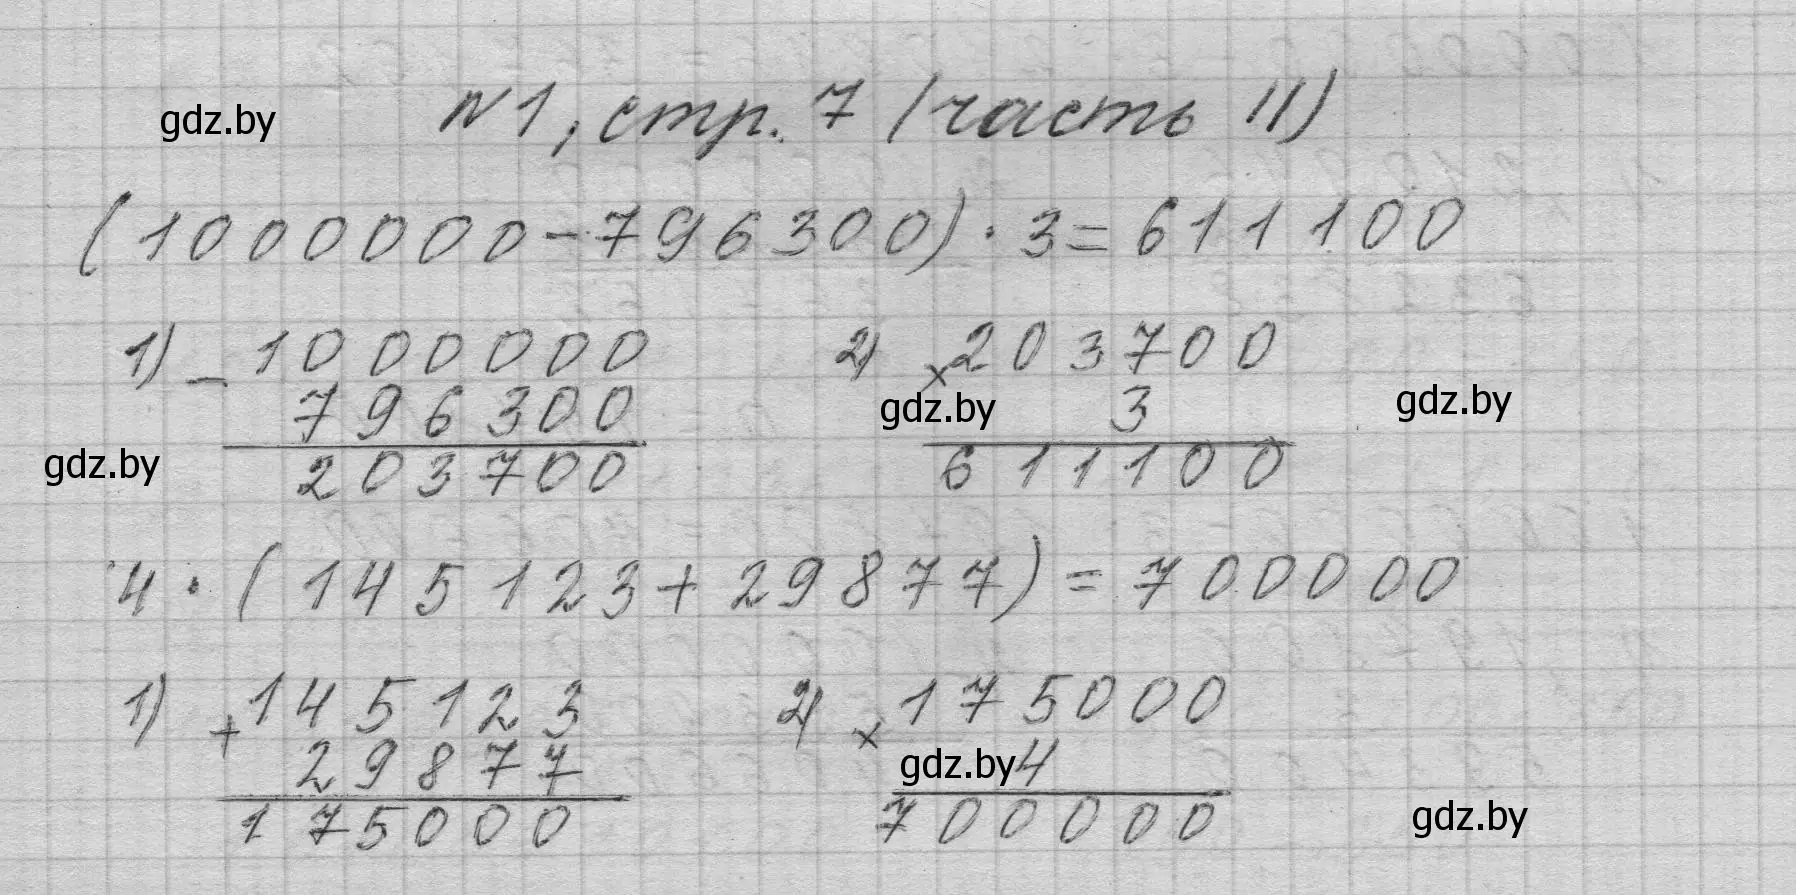 N1, стр. 7 (часть II)
gdz.by
(1000000-796300)·3=611100
1) - 1000000
796300
203700
2) × 203700
3
611100
gdz.by
gdz.by
gdz.by
4·(145123+29877)=700000
1) + 145123
29877
175000
2) × 175000
4
700000
gdz.by
gdz.by